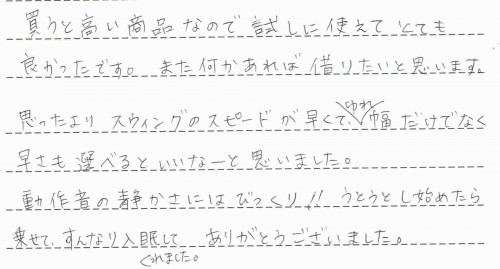 買うと高い商品なので試しに使えてとても
良かったです。また何かあれば借りたいと思います。
思ったよりスウィングのスピードが早くて、ゆれ幅だけでなく
早さも選べるといいなーと思いました。
動作者の静かさにはびっくり!! うとうとし始めたら
乗せて、すんなり入眠してくれました。ありがとうございました。